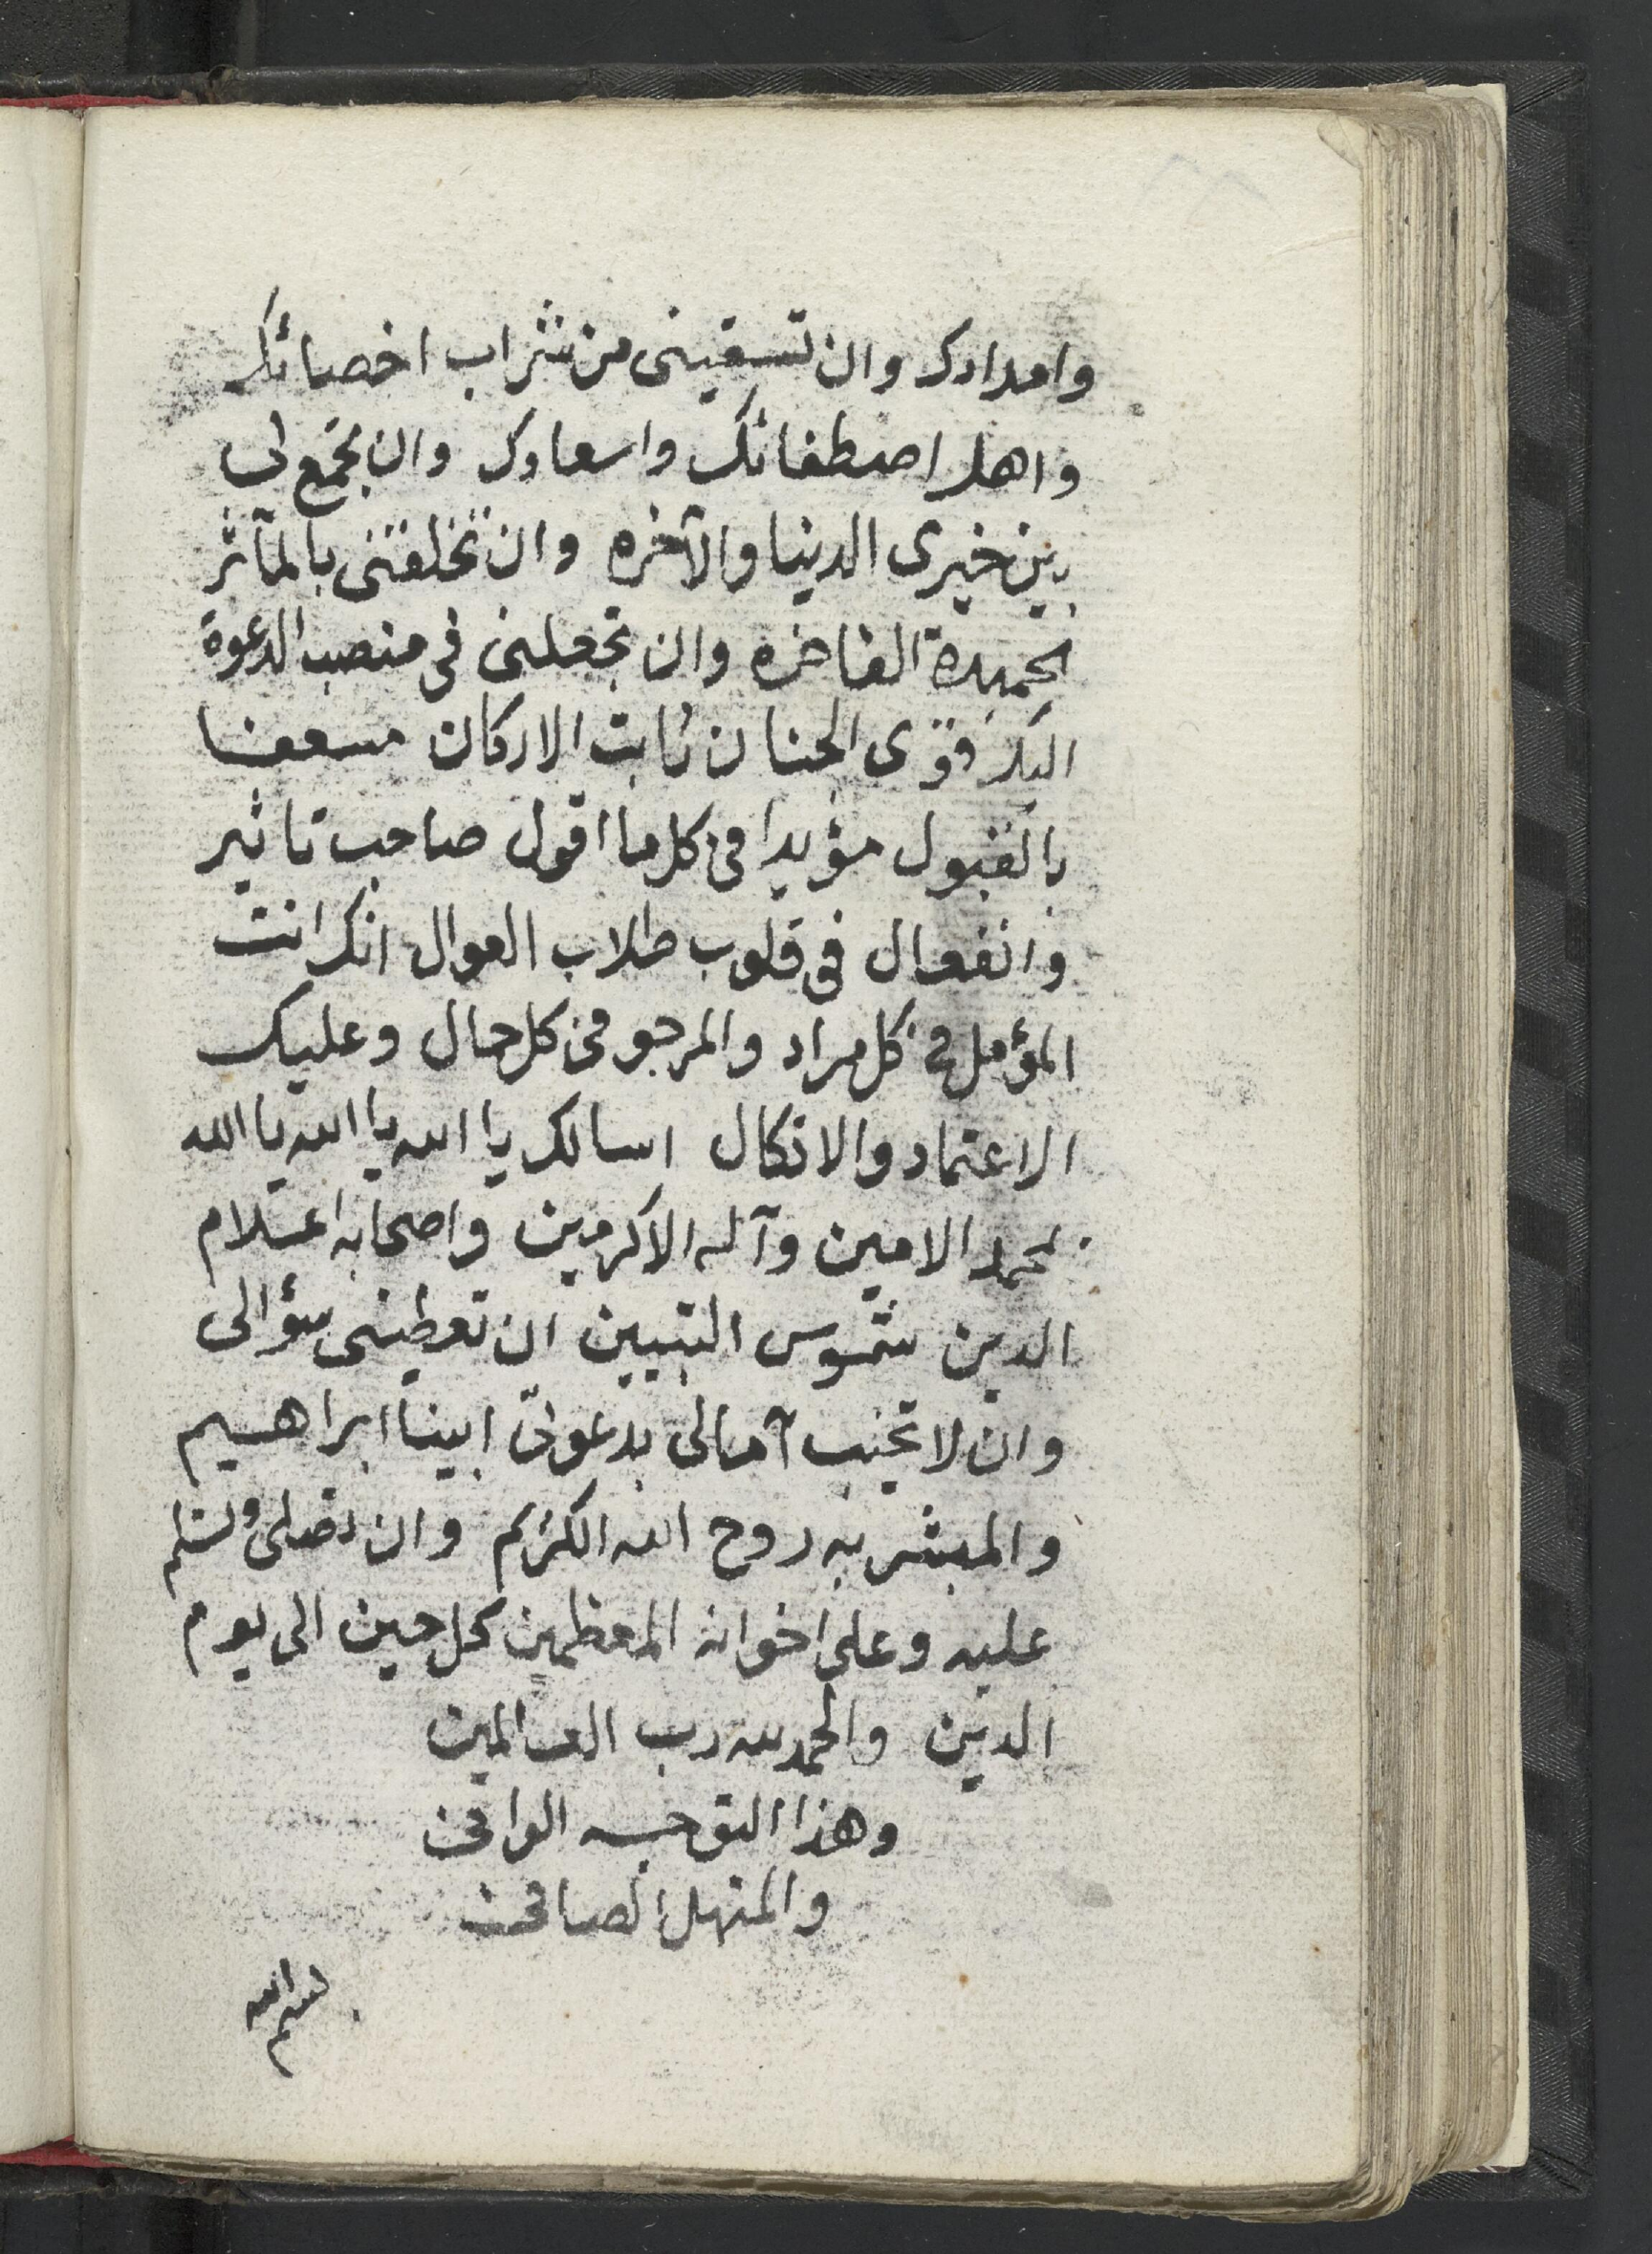 وامدادك وان تسقينى من شراب اخصائك
واهل اصطفائك واسعادك وان تجمع لى
بين خيرى الدنيا والآخره وان تخلقنى بالمآثر
الحميدة الفاخره وان تجعلنى فى منصب الدعوة
اليك قوى الجنان ثابت الاركان مسعفا
بالقبول مؤيدا فى كل ما اقول صاحب تاثير
وانفعال فى قلوب طلاب العوال انك انت
المؤمل فى كل مراد والمرجو فى كل حال وعليك
الاعتماد والاتكال اسالك يا الله يا الله يا الله
بمحمد الامين وآله الاكرمين واصحابه اعلام
الدين شموس التبيين ان تعطينى سؤالى
وان لا تخيب آمالى بدعوة ابينا ابراهيم
والمبشر به روح الله الكريم وان تصلى وتسلم
عليه وعلى اخوانه المعظمين كل حين الى يوم
الدين والحمد لله رب العالمين
وهذا التوجه الوافى
والمنهل الصافى
بسم الله